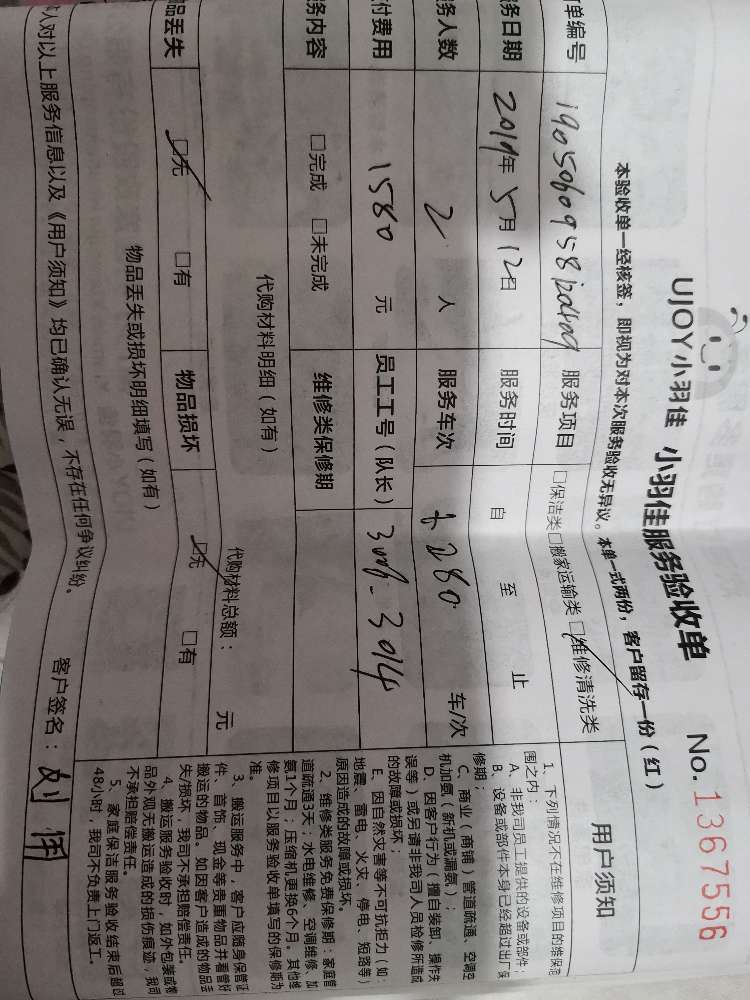 UJOY小羽佳 小羽佳服务验收单 No. 1367556
本验收单一经核签，即视为对本次服务验收无异议。本单一式两份，客户留存一份（红）
单编号 服务项目 □保洁类 □搬家运输类 □维修清洗类
务日期 2019年5月12日 服务时间 自 至 止
务人数 2 人 服务车次 280 车/次
付费用 1580 元 员工工号（队长） 3006-3014
务内容 □完成 □未完成 维修类保修期
代购材料明细（如有）
代购材料总额： 元
品丢失 □无 □有 物品损坏 □无 □有
物品丢失或损坏明细填写（如有）
人对以上服务信息以及《用户须知》均已确认无误，不存在任何争议纠纷。
客户签名：刘伟
用户须知
1、下列情况不在维修项目的维保范
围之内：
A、非我司员工提供的设备或部件；
B、设备或部件本身已经超过出厂保
修期；
C、商业（商铺）管道疏通、空调空
机加氨（新机或漏氨）；
D、因客户行为（擅自装卸、操作失
误等）或另请非我司人员检修所造成
的故障或损坏；
E、因自然灾害等不可抗拒力（如：
地震、雷电、火灾、停电、短路等）
原因造成的故障或损坏。
2、维修类服务免费保修期：家庭管
道疏通3天；水电维修、空调维修、加
氨1个月；压缩机更换6个月。其他维
修项目以服务验收单填写的保修期为
准。
3、搬运服务中，客户应随身保管证
件、首饰、现金等贵重物品并看管好
搬运的物品。如因客户造成的物品丢
失/损坏，我司不承担赔偿责任。
4、搬运服务验收时，如外包装或物
品外观无搬运造成的损伤痕迹，我司
不承担赔偿责任。
5、家庭保洁服务验收结束后超过
48小时，我司不负责上门返工。